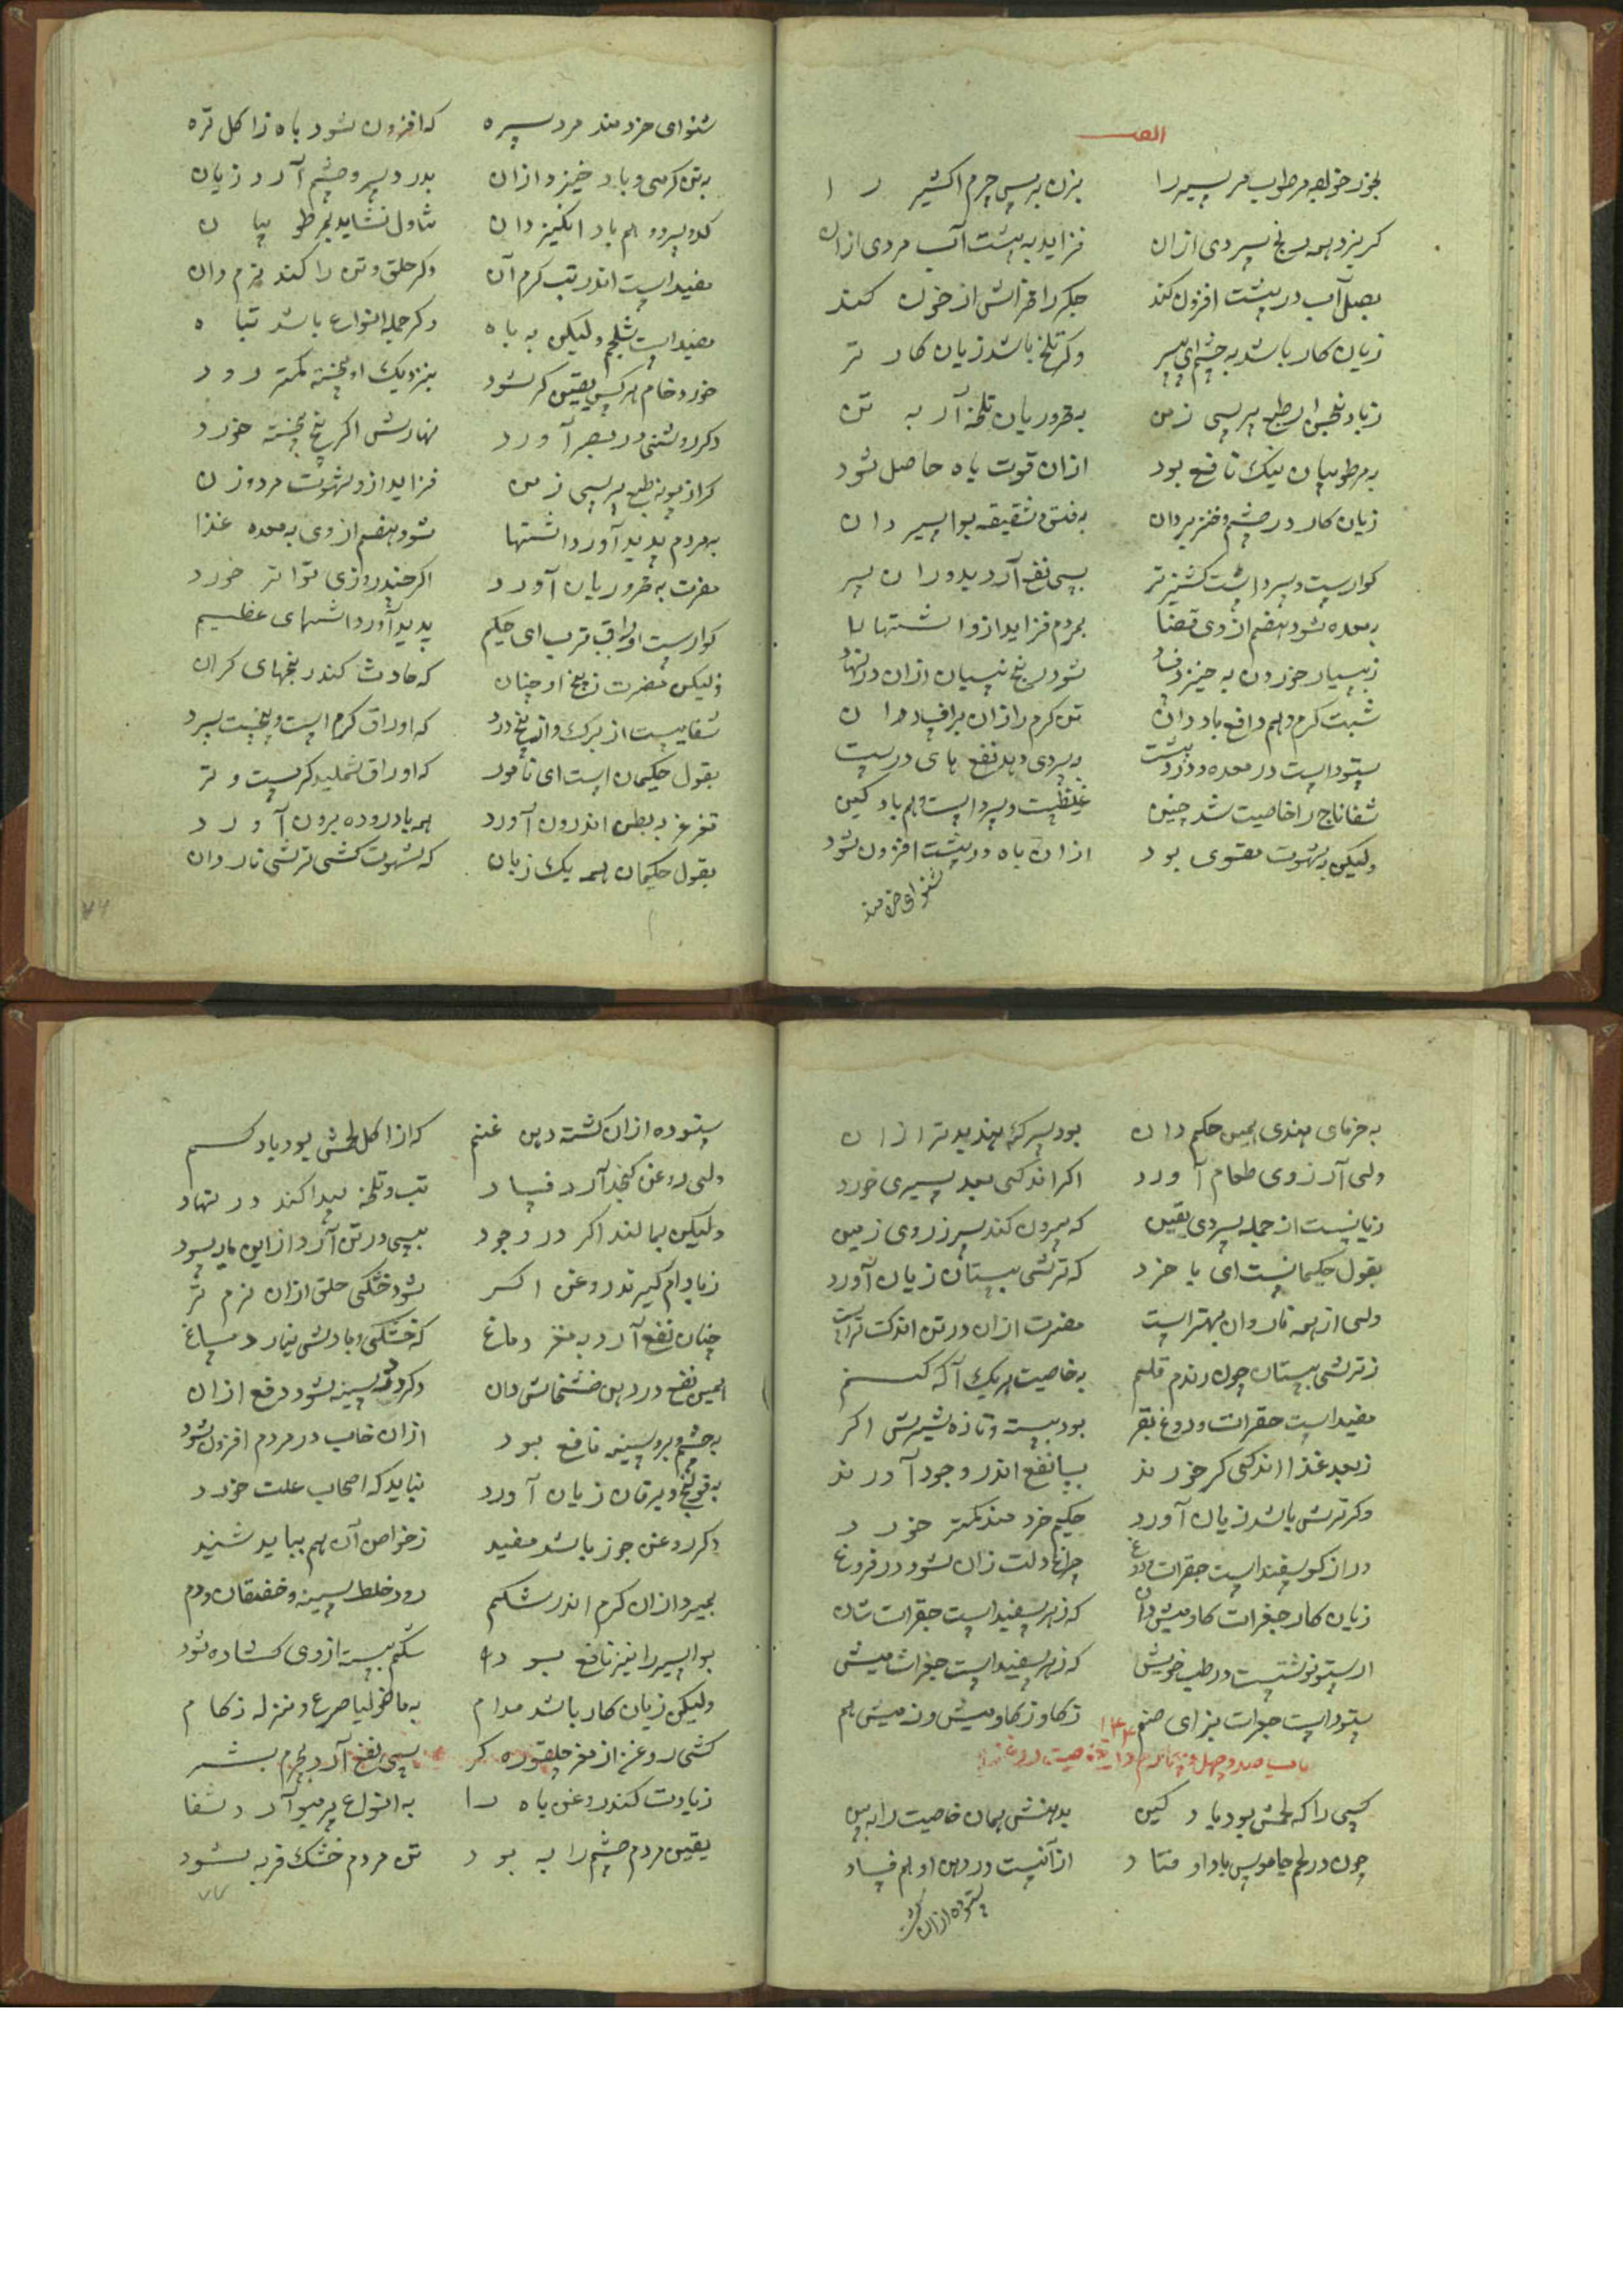 الف
بخور خواجه مرطوب مر سیر را بزن به پس جرم اکثیر را
گریزد همه رنج سردی ازان فزاید به پشت آب مردی ازان
بصل آب در پشت افزون کند جگر را فزایش از خون کند
زیان کار باشد به چشم ای پسر وگر تلخ باشد زیان کار تر
به محروریان تلخه آرد به تن
به مرطوبیان نیک نافع بود ازان قوت باه حاصل شود
زیان کار در چشم و خنزیر دان به فتق و شقیقه بواسیر دان
گوارست و سرد است کشنیز تر بسی نفع آرد بدوران سر
به معده شود هضم ازوی قضا بمردم فزاید ازو اشتها
ز بسیار خوردن به خیزد فساد شود رنج نسیان ازان در نهاد
شبت گرم و هم دافع باد دان تن گرم را زان برافساد دان
ستود است در معده و درد پشت به سردی دهد نفع های درست
شفاناج را خاصیت شد چنین غلیظست و سرد است و هم باد گین
ولیکن به شهوت مقوی بود ازان باه در پشت افزون شود
شنو ای خردمند
شنو ای خردمند مرد سره که افزون شود باه زاکل تره
به تن گرمی و باد خیزد ازان بدرد سر و چشم آرد زیان
کدو سرد و هم باد انگیز دان تناول نشاید بمرطوبیان
مفید است اندر تب گرم آن وگر حلق و تن را کند نرم دان
مفید است شلجم ولیکن به باه وگر جمله انواع باشد تباه
خورد خام هر کس یقین گر شود بنزدیک او پخته کمتر رود
وگر روشنی در بصر آورد نهارش اگر پخته خورد
گر از پونه طبع پرسی ز من فزاید ازو شهوت مرد و زن
به مردم پدید آورد اشتها شود هضم ازوی به معده غذا
مضرت به محروریان آورد اگر چند روزی تواتر خورد
گوارست اوراق ترب ای حکیم پدید آورد اشتهای عظیم
ولیکن مضرت ز بیخ او چنان که حادث کند رنجهای گران
شقاییست از برگ و از بیخ درد که اوراق گرم است و بیخست سرد
بقول حکیمان است ای نامور که اوراق شملید گرمست و تر
تفرغر به بطن اندرون آورد همه باد روده برون آورد
بقول حکیمان همه یک زبان که شهوت کشی ترشی ناردان
۷۶
به خرمای هندی همین حکم دان بود سرکه هندیه تر ازان
ولی آرزوی طعام آورد اگر اندکی بعد سیری خورد
زیانیست از جمله سردی یقین که بیرون کند سر ز روی زمین
بقول حکیمانست ای با خرد که ترشی بستان زیان آورد
ولی از همه ناردان بهتر است مضرت ازان در تن اندک تر است
ز ترشی بستان چون راندم قلم به خاصیت هر یک آگه کنم
مفید است جغرات و دوغ بقر بود بسته و تازه شیرش اگر
ز بعد غذا اندکی گر خورند بسا نفع اندر وجود آورند
وگر ترش باشد زیان آورد حکیم خردمند کمتر خورد
ور از گوسفند است جغرات دوغ چراغ دلت زان شود در فروغ
زیان کار جغرات گاومیش دان که زهر سفید است جغرات شان
ارستو نوشتست در طب خویش که زهر سفید است جغرات میش
ستود است جغرات بز ای صنم ز گاو ز گاومیش و ز میش هم
۱۴۴
باب صد و چهل و چهارم در خاصیت روغنها
کسی را که لحمش بود باد گین بدهنش همان خاصیت را ببین
چون در لحم جاموس باد اوفتاد ازآنست در دهن او هم فساد
ستوده ازان گشت
ستوده ازان گشته دهن غنم که از اکل لحمش بود باد کم
ولی روغن کنجد آرد فساد تب و تلخه پیدا کند در نهاد
ولیکن بمالند اگر در وجود بسی در تن آرد ازاین مایه سود
ز بادام گیرند روغن اگر شود خشکی حلق ازان نرم تر
چنان نفع آرد به مغز و دماغ که خشکی و بادش نیارد مساغ
همین نفع در دهن خشخاش دان وگر درد سینه شود دفع ازان
به چشم و بر و سینه نافع بود ازان خواب در مردم افزون شود
به قولنج و یرقان زیان آورد نباید که اصحاب علت خورد
وگر روغن جوز باشد مفید ز خواص آن هم بباید شنید
بمیرد ازان کرم اندر شکم رود خلط سینه و خفقان و دم
بواسیر را نیز نافع بود شکم بسته ازوی گشاده شود
ولیکن زیان کار باشد مدام به مالخولیا صرع و نزله زکام
کشی روغن از مغز چلقوزه گر بسی نفع آرد بجرم بشر
زیادت کند روغن باه را به انواع پرمیو آرد شفا
یقین مردم چشم را به بود تن مردم خشک فربه شود
۷۷